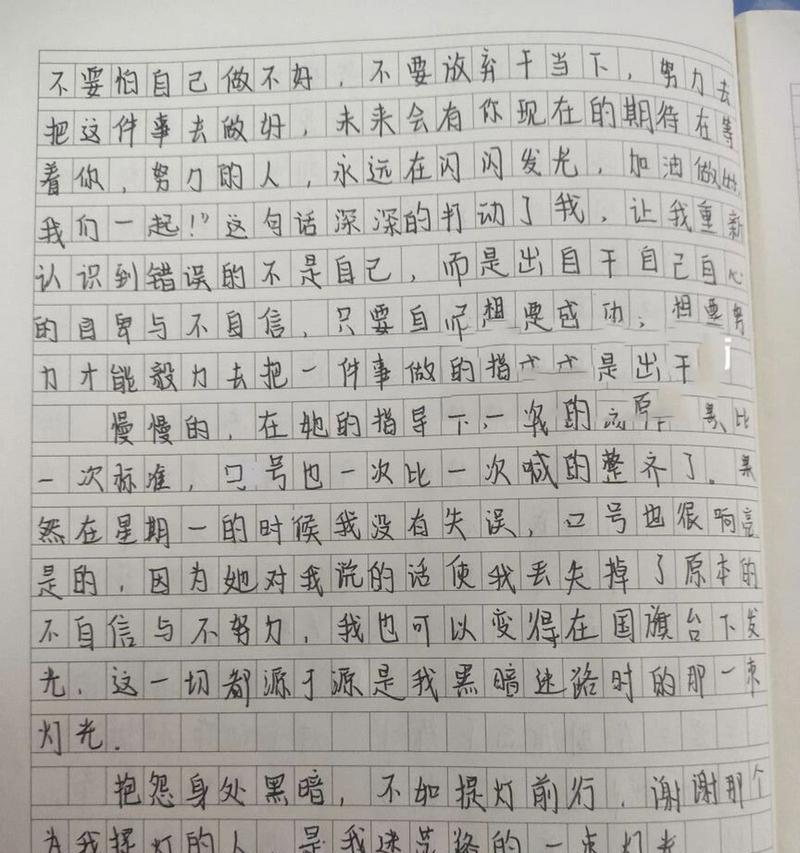 不要怕自己做不好，不要放弃于当下，努力去
把这件事去做好，未来会有你现在的期待在等
着你，努力的人，永远在闪闪发光，加油做好，
我们一起！”这句话深深的打动了我，让我重新
认识到错误的不是自己，而是出自于自己自心
的自卑与不自信，只要自己想要成功，想要努
力才能毅力去把一件事做的指是出于
慢慢的，在她的指导下，一次的比
一次标准，口号也一次比一次喊的整齐了。果
然在星期一的时候我没有失误，口号也很响亮
是的，因为她对我说的话使我丢失掉了原本的
不自信与不努力，我也可以变得在国旗台下发
光，这一切都源于源是我黑暗迷路时的那一束
灯光.
抱怨身处黑暗，不如提灯前行，谢谢那个
为我提灯的人，是我迷茫路的一束灯光